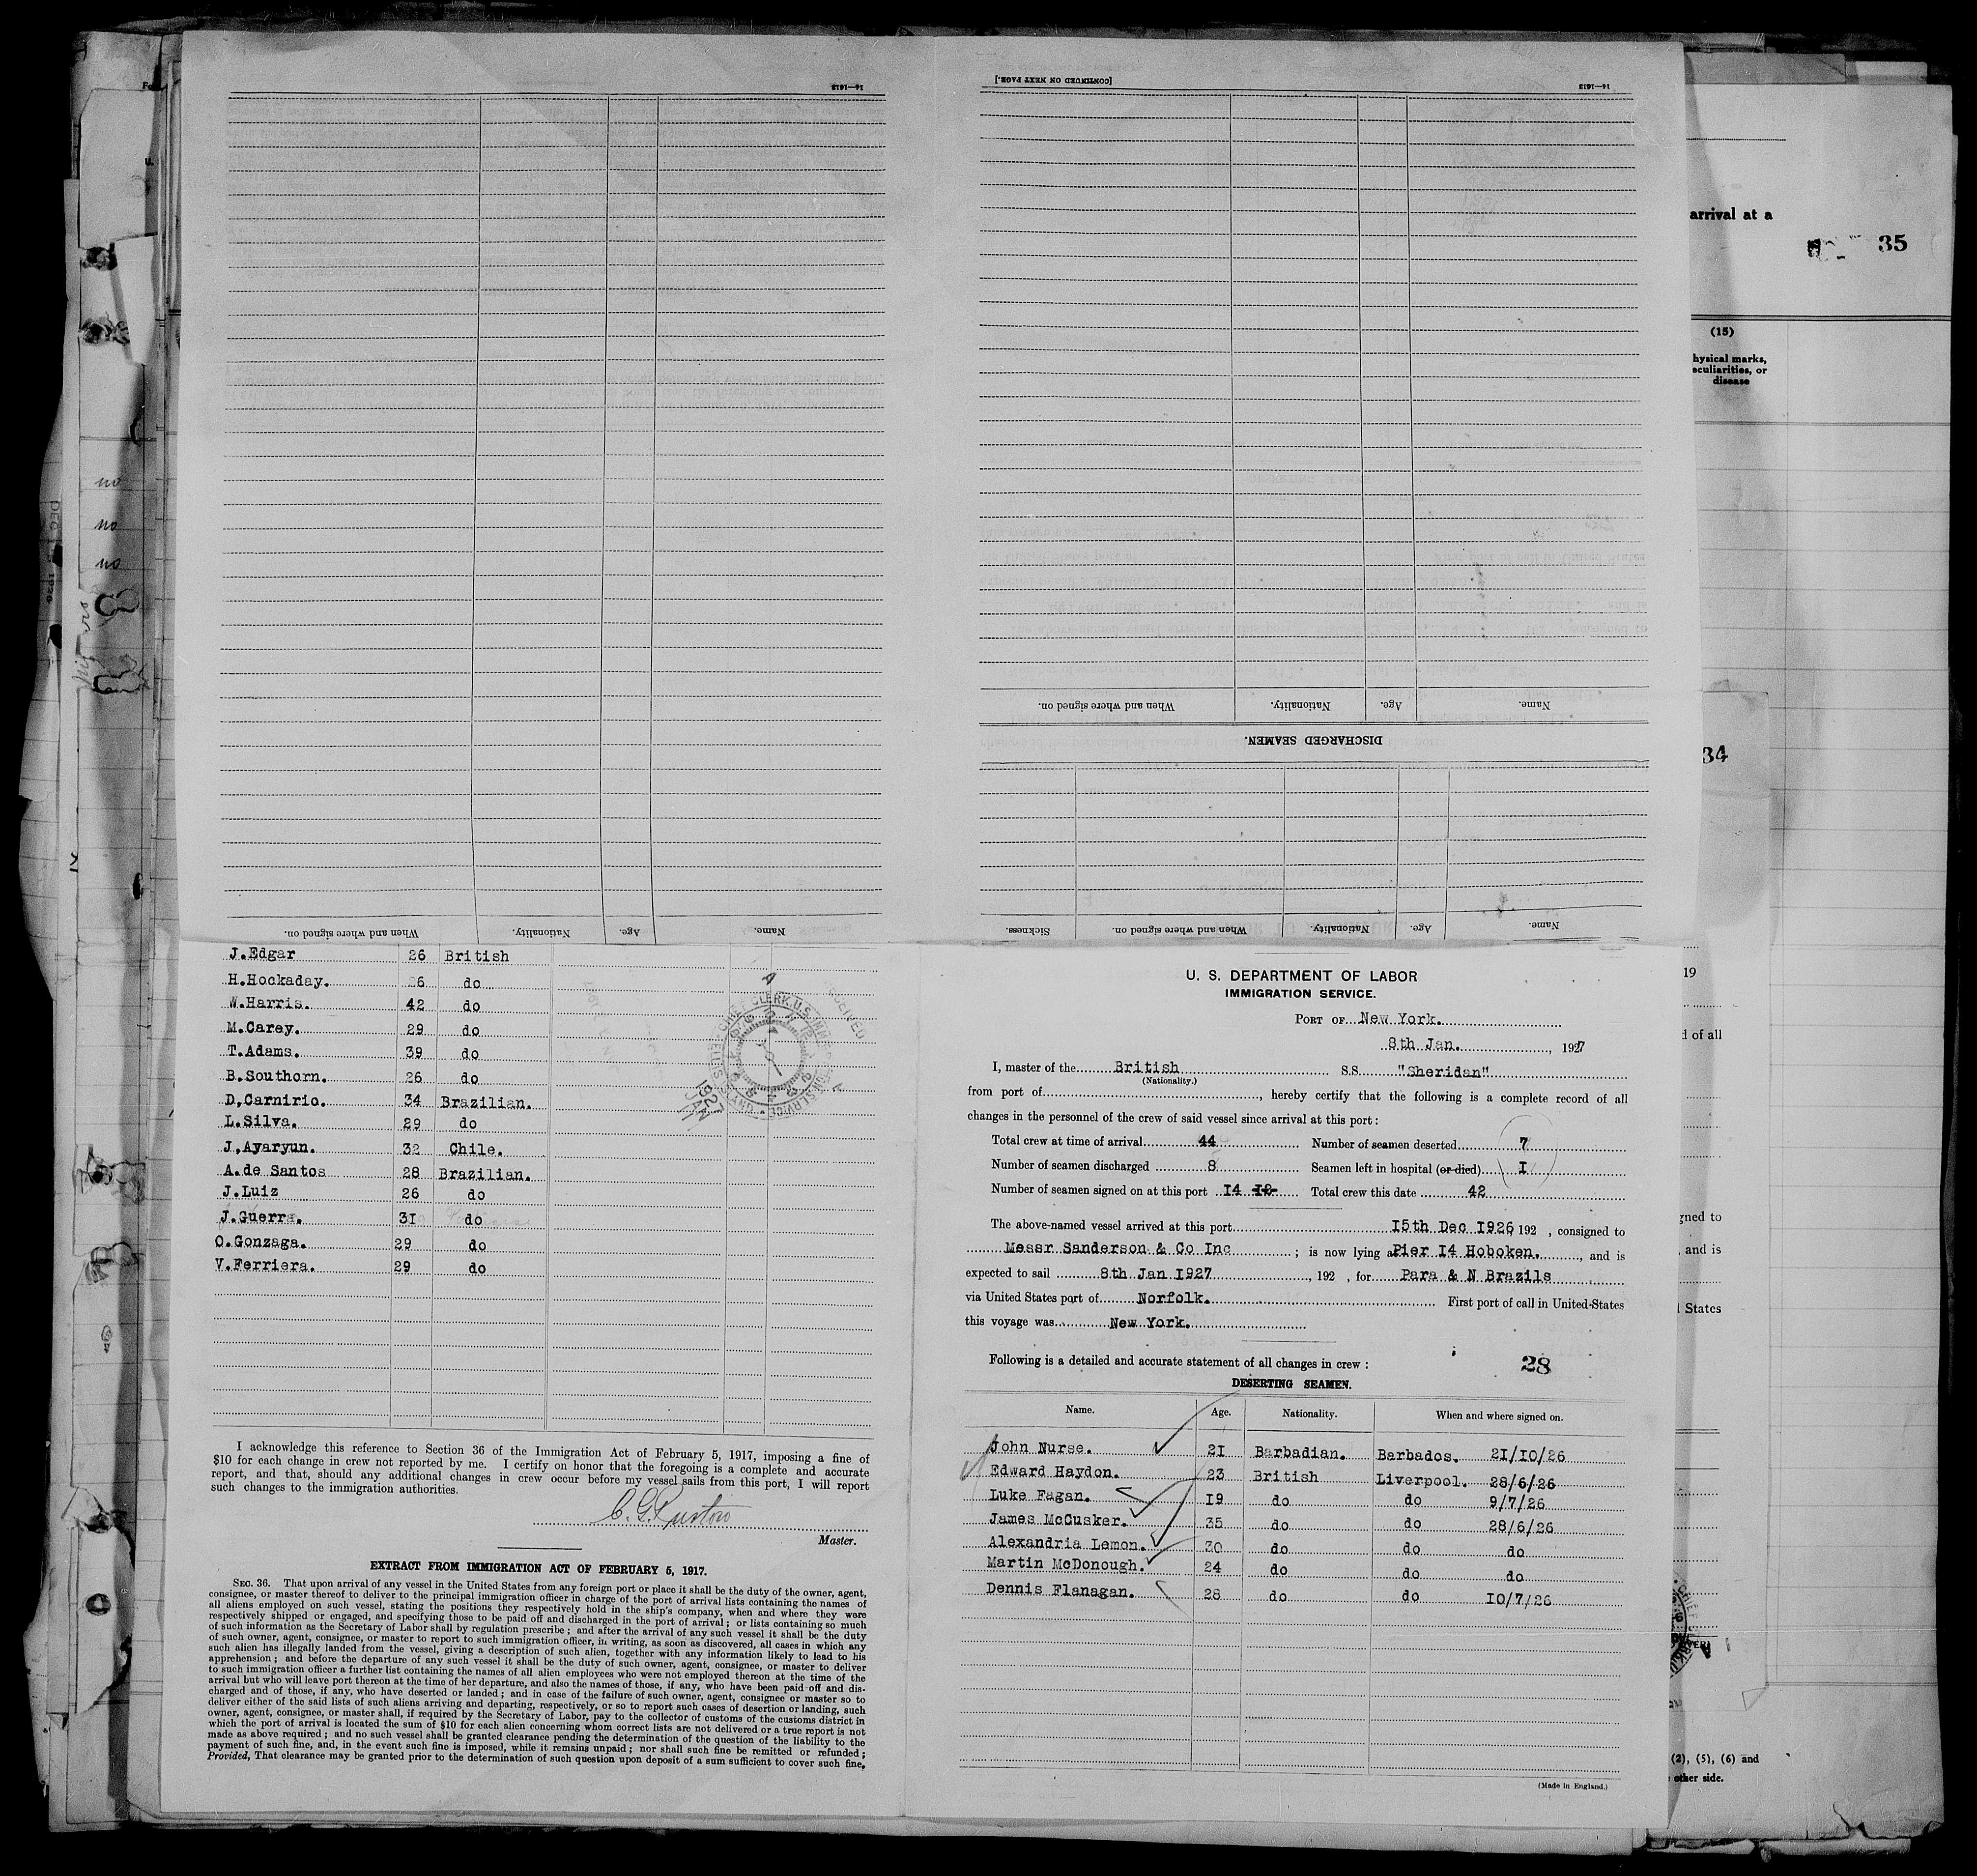 [CONTINUED ON NEXT PAGE.]
14—1613
14—1613
When and where signed on.
Nationality.
Age.
Name.
DISCHARGED SEAMEN.
Sickness.
When and where signed on.
Nationality.
Age.
Name.
When and where signed on.
Nationality.
Age.
Name.
J.Edgar 26 British
H.Hockaday. 26 do
W.Harris. 42 do
M.Carey. 29 do
T.Adams. 39 do
B.Southorn. 26 do
D,Carnirio. 34 Brazilian.
L.Silva. 29 do
J,Ayaryun. 32 Chile.
A.de Santos 28 Brazilian.
J.Luiz 26 do
J.Guerra. 31 do
O.Gonzaga. 29 do
V.Ferriera. 29 do
I acknowledge this reference to Section 36 of the Immigration Act of February 5, 1917, imposing a fine of
$10 for each change in crew not reported by me. I certify on honor that the foregoing is a complete and accurate
report, and that, should any additional changes in crew occur before my vessel sails from this port, I will report
such changes to the immigration authorities.
Master.
EXTRACT FROM IMMIGRATION ACT OF FEBRUARY 5, 1917.
SEC. 36. That upon arrival of any vessel in the United States from any foreign port or place it shall be the duty of the owner, agent,
consignee, or master thereof to deliver to the principal immigration officer in charge of the port of arrival lists containing the names of
all aliens employed on such vessel, stating the positions they respectively hold in the ship's company, when and where they were
respectively shipped or engaged, and specifying those to be paid off and discharged in the port of arrival; or lists containing so much
of such information as the Secretary of Labor shall by regulation prescribe; and after the arrival of any such vessel it shall be the duty
of such owner, agent, consignee, or master to report to such immigration officer, in writing, as soon as discovered, all cases in which any
such alien has illegally landed from the vessel, giving a description of such alien, together with any information likely to lead to his
apprehension; and before the departure of any such vessel it shall be the duty of such owner, agent, consignee, or master to deliver
to such immigration officer a further list containing the names of all alien employees who were not employed thereon at the time of the
arrival but who will leave port thereon at the time of her departure, and also the names of those, if any, who have been paid off and dis-
charged and of those, if any, who have deserted or landed; and in case of the failure of such owner, agent, consignee or master so to
deliver either of the said lists of such aliens arriving and departing, respectively, or so to report such cases of desertion or landing, such
owner, agent, consignee, or master shall, if required by the Secretary of Labor, pay to the collector of customs of the customs district in
which the port of arrival is located the sum of $10 for each alien concerning whom correct lists are not delivered or a true report is not
made as above required; and no such vessel shall be granted clearance pending the determination of the question of the liability to the
payment of such fine, and, in the event such fine is imposed, while it remains unpaid; nor shall such fine be remitted or refunded;
Provided, That clearance may be granted prior to the determination of such question upon deposit of a sum sufficient to cover such fine.
U. S. DEPARTMENT OF LABOR
IMMIGRATION SERVICE.
PORT OF New York.
8th Jan. , 1927
I, master of the British SS "Sheridan"
(Nationality.)
from port of , hereby certify that the following is a complete record of all
changes in the personnel of the crew of said vessel since arrival at this port:
Total crew at time of arrival 44 Number of seamen deserted 7
Number of seamen discharged 8 Seamen left in hospital (or died) I
Number of seamen signed on at this port I4 I2 Total crew this date 42
The above-named vessel arrived at this port I5th Dec I926 192 , consigned to
Messr Sanderson & Co Inc ; is now lying a Pier I4 Hoboken. , and is
expected to sail 8th Jan I927 , 192 , for Para & N Brazils
via United States port of Norfolk. First port of call in United States
this voyage was New York.
Following is a detailed and accurate statement of all changes in crew:
28
DESERTING SEAMEN.
Name. Age. Nationality. When and where signed on.
John Nurse. 2I Barbadian. Barbados. 2I/IO/26
Edward Haydon. 23 British Liverpool. 28/6/26
Luke Fagan. I9 do do 9/7/26
James McCusker. 35 do do 28/6/26
Alexandria Lemon. 30 do do do
Martin McDonough. 24 do do do
Dennis Flanagan. 28 do do IO/7/26
(Made in England.)
arrival at a
35
(15)
hysical marks,
eculiarities, or
disease
34
19
d of all
gned to
, and is
d States
(2), (5), (6) and
other side.
no
no
no